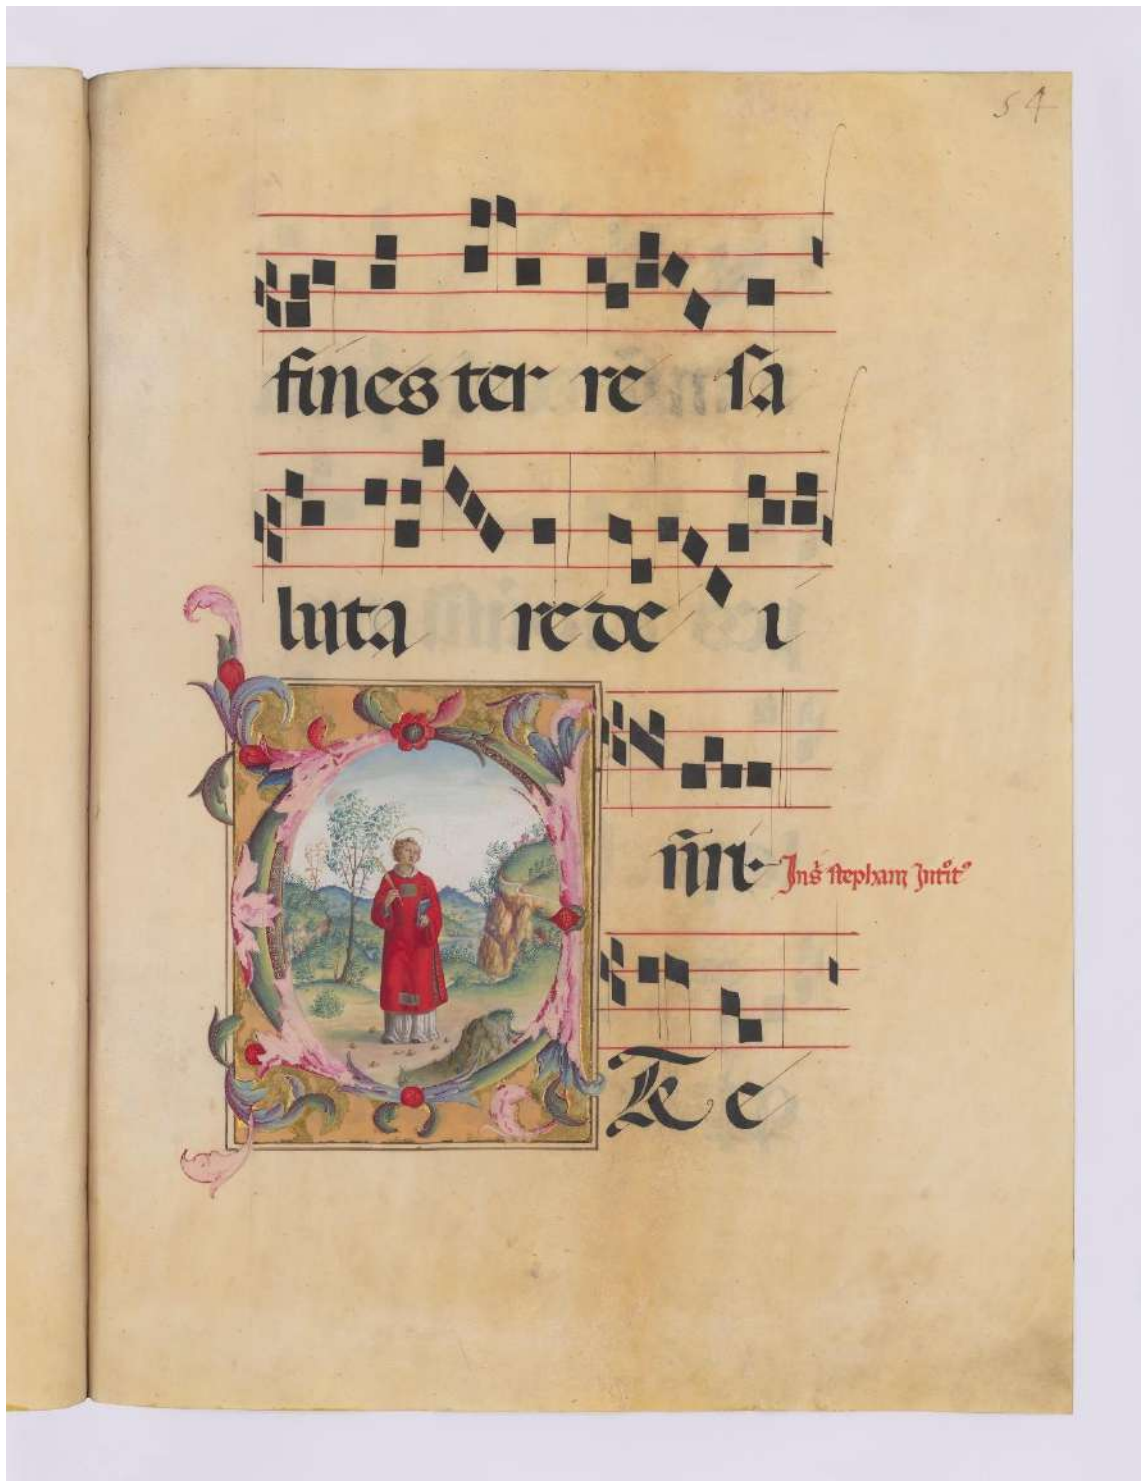 54
fines ter re sa
luta re de i
n̄ri·
In s̄ stephani Introit⁹
Et e